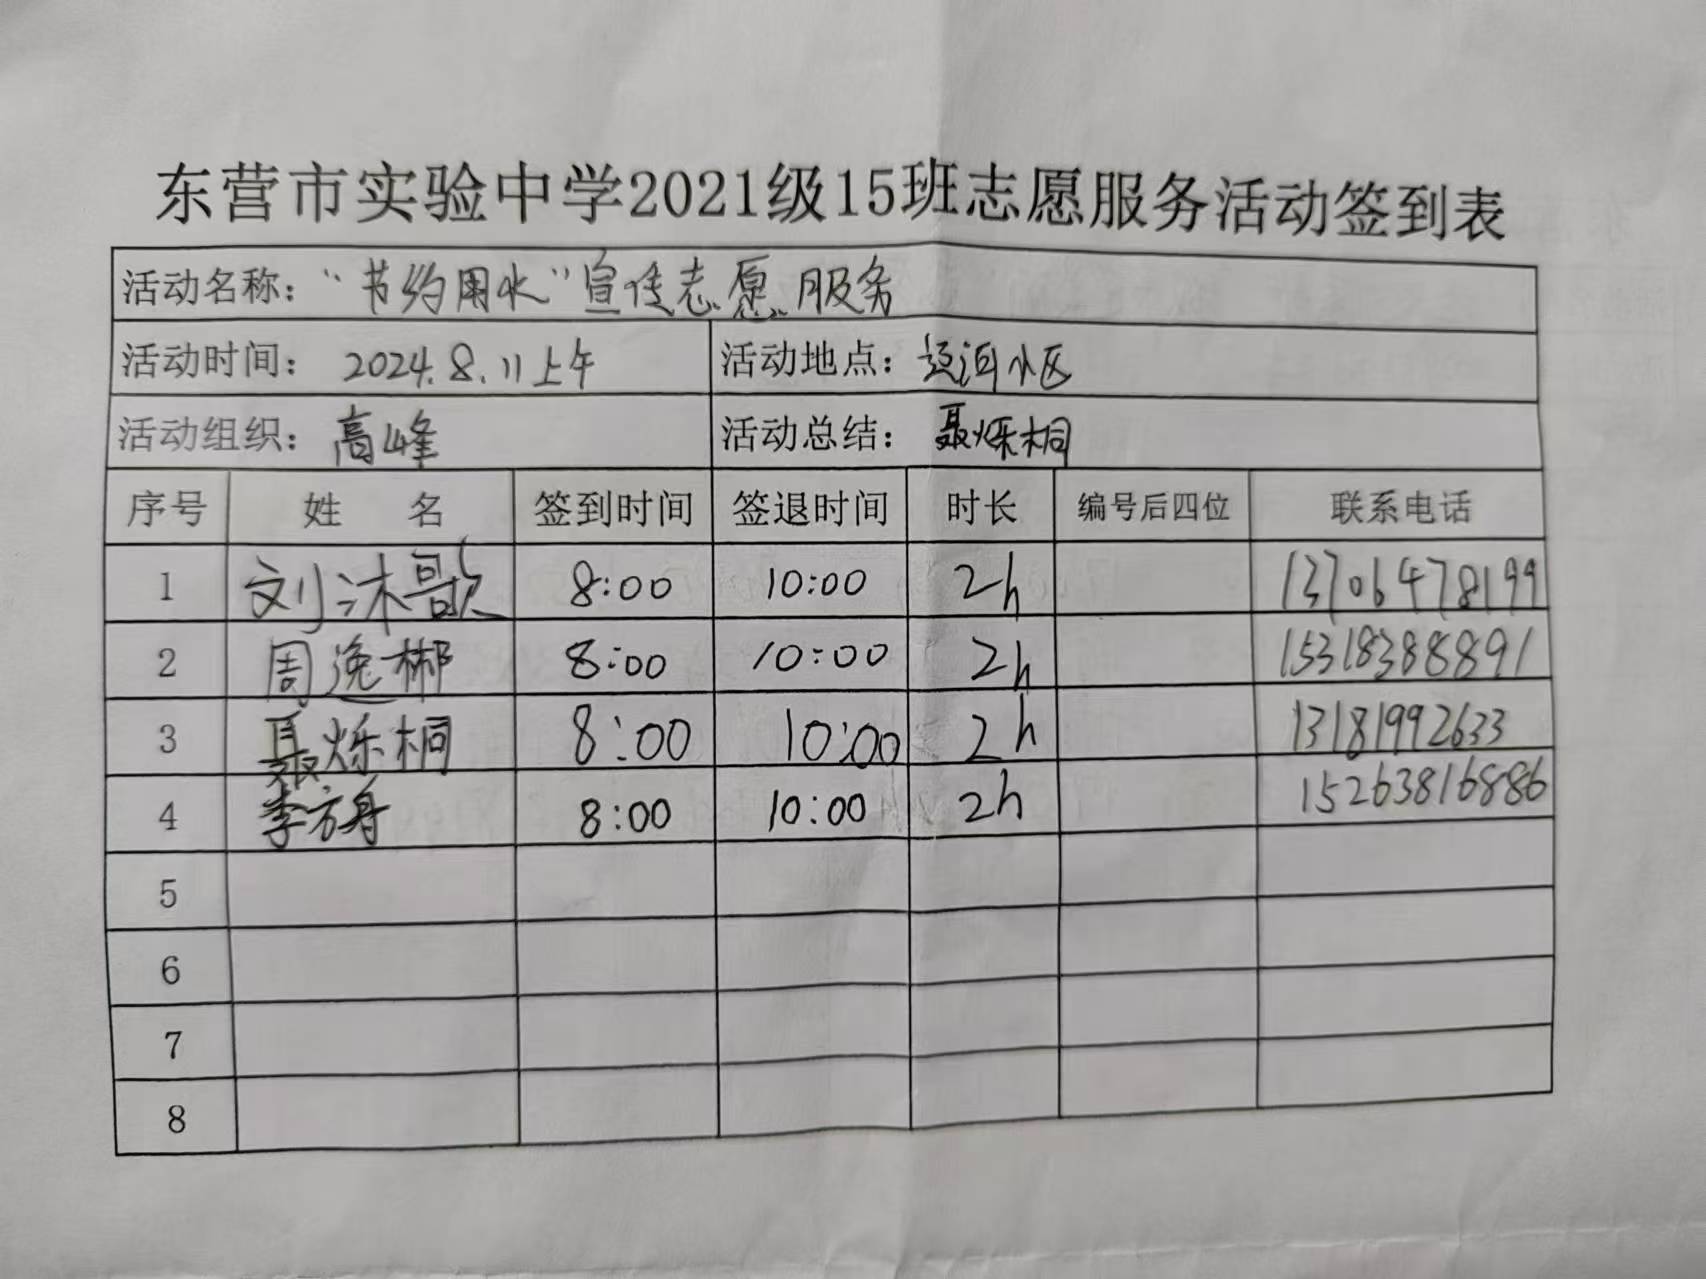 东营市实验中学2021级15班志愿服务活动签到表
活动名称：“节约用水”宣传志愿服务
活动时间：2024.8.11上午 活动地点：河小区
活动组织：高峰 活动总结：聂烁桐
序号 姓 名 签到时间 签退时间 时长 编号后四位 联系电话
1 刘沐歌 8:00 10:00 2h 13706478199
2 周逸郴 8:00 10:00 2h 15318388891
3 聂烁桐 8:00 10:00 2h 13181992633
4 李方舟 8:00 10:00 2h 15263816886
5
6
7
8